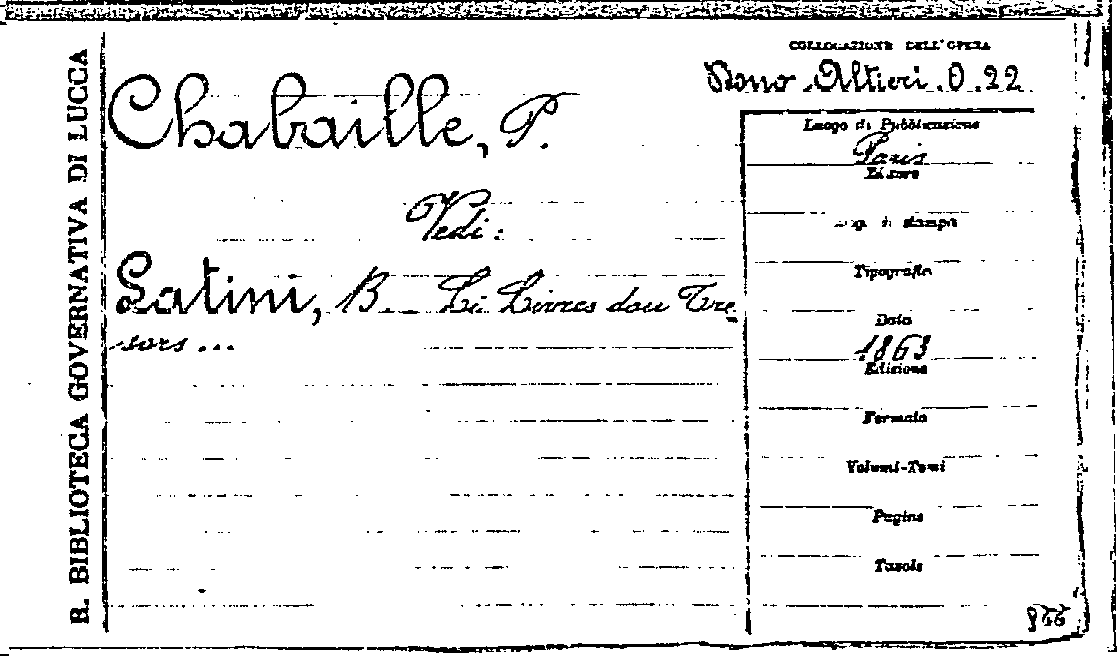 R. BIBLIOTECA GOVERNATIVA DI LUCCA
COLLOCAZIONE DELL'OPERA
Dono Altieri. O. 22
Chabaille, P.
Vedi:
Latini, B.. Li Livres dou Tre
sors...
Luogo di Pubblicazione
Paris
Editore
Luog. di stampa
Tipografia
Data
1863
Edizione
Formato
Volumi-Tomi
Pagine
Tavole